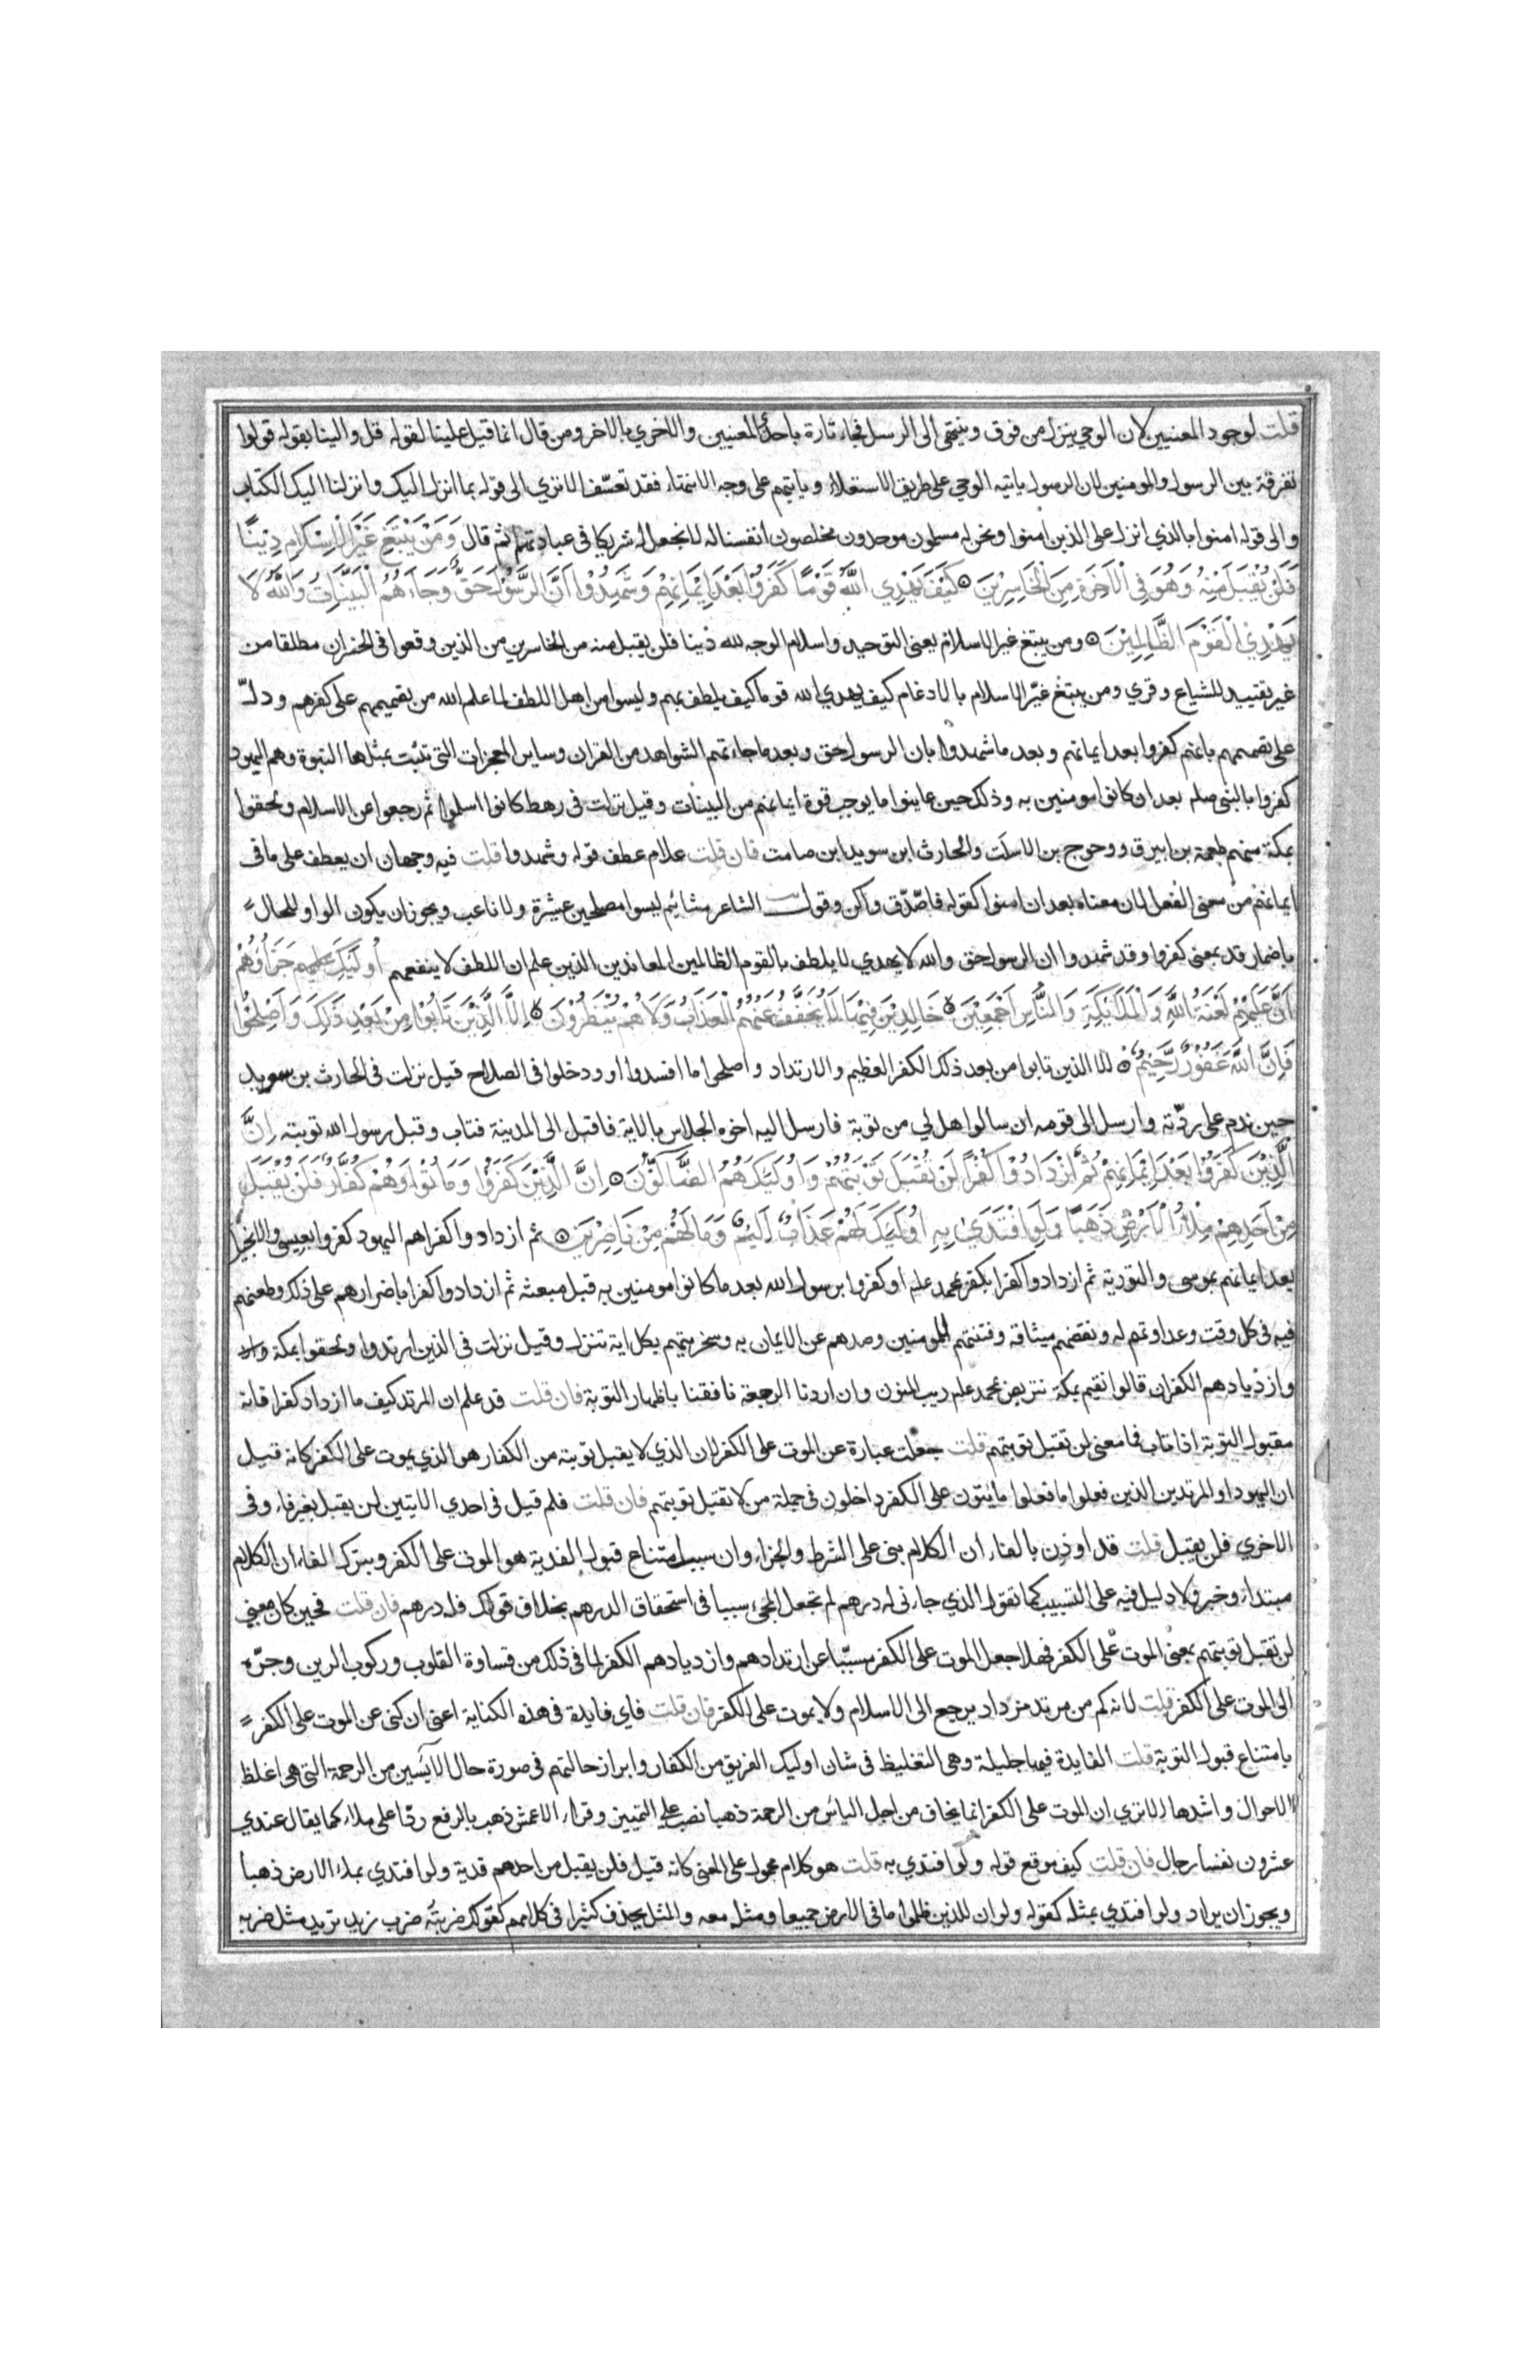 قلت لوجود المعنيين لان الوحي ينزل من فوق وينتهي الى الرسل فجاء تارة باحد المعنيين والاخري بالاخر ومن قال انما قيل علينا لقوله قل والينا بقوله قولوا
تفرقة بين الرسول والمومنين لان الرسول ياتيه الوحي على طريق الاستعلاء وياتيهم على وجه الانتهاء فقد تعسّف الا تري الى قوله بما انزل اليك وانزلنا اليك الكتاب
والى قوله امنوا بالذي انزل على الذين امنوا ونحن له مسلمون موحدون مخلصون انفسنا له لا نجعل له شريكا في عبادتهم ثم قال وَمَنْ يَبْتَغِ غَيْرَ الْاِسْلَامِ دِيْنًا
فَلَنْ يُقْبَلَ مِنْهُ وَهُوَ فِي الْآخِرَةِ مِنَ الْخَاسِرِيْنَ كَيْفَ يَهْدِي اللَّهُ قَوْمًا كَفَرُوا بَعْدَ اِيْمَانِهِمْ وَشَهِدُوْا اَنَّ الرَّسُوْلَ حَقٌّ وَجَاءَهُمُ الْبَيِّنَاتُ وَاللَّهُ لَا
يَهْدِيْ الْقَوْمَ الظَّالِمِيْنَ ومن يبتغ غير الاسلام يعني التوحيد واسلام الوجه لله دينا فلن يقبل منه من الخاسرين من الذين وقعوا في الخسران مطلقا من
غير تقييد للشياع وقري ومن يبتغ غيّر الاسلام بالادغام كيف يهدي الله قوما كيف يلطف بهم وليسوا من اهل اللطف لما علم الله من تصميمهم على كفرهم ودلّ
على تصميمهم بانهم كفروا بعد ايمانهم وبعد ما شهدوا بان الرسول حق وبعد ما جاءتهم الشواهد من القران وساير المعجزات التي تثبت بمثلها النبوة وهم اليهود
كفروا بالنبي صلم بعد ان كانوا مومنين به وذلك حين عاينوا ما يوجب قوة ايمانهم من البينات وقيل نزلت في رهط كانوا اسلموا ثم رجعوا عن الاسلام ولحقوا
بمكة منهم طعمة بن ابيرق ووحوج بن الاسلت والحارث ابن سويد ابن صامت فان قلت علام عطف قوله وشهدوا قلت فيه وجهان ان يعطف على ما في
ايمانهم من معني الفعل لان معناه بعد ان امنوا كقوله فاصّدّق واكن وقول الشاعر مشائيم ليسوا مصلحين عشيرة ولا ناعب ويجوز ان يكون الواو للحال
باضمار قد بمعني كفروا وقد شهدوا ان الرسول حق والله لا يهدي لا يلطف بالقوم الظالمين المعاندين الذين علم ان اللطف لا ينفعهم اُولَٓئِكَ جَزَآؤُهُمْ
اَنَّ عَلَيْهِمْ لَعْنَةَ اللَّهِ وَالْمَلَائِكَةِ وَالنَّاسِ اَجْمَعِيْنَ خَالِدِيْنَ فِيْهَا لَا يُخَفَّفُ عَنْهُمُ الْعَذَابُ وَلَا هُمْ يُنْظَرُوْنَ اِلَّا الَّذِيْنَ تَابُوْا مِنْ بَعْدِ ذَلِكَ وَاَصْلَحُوْا
فَاِنَّ اللَّهَ غَفُوْرٌ رَّحِيْمٌ الا الذين تابوا من بعد ذلك الكفر العظيم والارتداد واصلحوا ما افسدوا او ودخلوا في الصلاح قيل نزلت في الحارث بن سويد
حين ندم على ردّته وارسل الى قومه ان سالوا هل لي من توبة فارسل اليه اخوه الجلاس بالاية فاقبل الى المدينة فتاب وقبل رسول الله توبته اِنَّ
الَّذِيْنَ كَفَرُوْا بَعْدَ اِيْمَانِهِمْ ثُمَّ ازْدَادُوْا كُفْرًا لَنْ تُقْبَلَ تَوْبَتُهُمْ وَاُولَئِكَ هُمُ الضَّآلُّوْنَ اِنَّ الَّذِيْنَ كَفَرُوْا وَمَاتُوْا وَهُمْ كُفَّارٌ فَلَنْ يُقْبَلَ
مِنْ اَحَدِهِمْ مِلْءُ الْاَرْضِ ذَهَبًا وَلَوِ افْتَدَىٰ بِهِ اُولَئِكَ لَهُمْ عَذَابٌ اَلِيْمٌ وَمَا لَهُمْ مِنْ نَاصِرِيْنَ ثم ازدادوا كفرا هم اليهود كفروا بعيسي والانجيل
بعد ايمانهم بموسى والتورية ثم ازدادوا كفرا بكفر محمد علم او كفروا برسول الله بعد ما كانوا مومنين به قبل مبعثه ثم ازدادوا كفرا باضرارهم على ذلك وطعنهم
فيه في كل وقت وعداوتهم له ونقضهم ميثاقه وفتنتهم للمومنين وصدهم عن الايمان به وسخريتهم بكل اية تنزل وقيل نزلت في الذين ارتدوا ولحقوا بمكة
وازديادهم الكفر ان قالوا نقيم بمكة نتربص بمحمد علم ريب المنون وان اردنا الرجعة نافقنا باظهار التوبة فان قلت قد علم ان المرتد كيف ما ازداد كفرا فانه
مقبول التوبة اذا تاب فما معني لن تقبل توبتهم قلت جعلت عبارة عن الموت على الكفر لان الذي لا يقبل توبته من الكفار هو الذي يموت على الكفر كانه قيل
ان اليهود او المرتدين الذين فعلوا ما فعلوا مايتون على الكفر داخلون في جملة من لا تقبل توبتهم فان قلت فلم قيل في احدي الايتين لن يقبل بغير فاء وفي
الاخري فلن يقبل قلت قد اوذن بالفاء ان الكلام بني على الشرط والجزاء وان سبب امتناع قبول الفدية هو الموت على الكفر وبترك الفاء ان الكلام
مبتداء وخبر ولا دليل فيه على التسبيب كما تقول الذي جاءني له درهم لم تجعل المجيء سببا في استحقاق الدرهم بخلاف قولك فله درهم فان قلت فحين كان معني
لن تقبل توبتهم بمعني الموت على الكفر فهلا جعل الموت على الكفر مسبّبا عن ارتدادهم وازديادهم الكفر لما في ذلك من قساوة القلوب وركوب الرين وجرّه
الى الموت على الكفر قلت لانه كم من مرتد مزداد يرجع الى الاسلام ولا يموت على الكفر فان قلت فاي فايدة في هذه الكناية اعني ان كنى عن الموت على الكفر
بامتناع قبول التوبة قلت الفايدة فيها جليلة وهي التغليظ في شان اوليك الفريق من الكفار وابراز حالتهم في صورة حال الآيسين من الرحمة التي هي اغلظ
الاحوال واشدها الا تري ان الموت على الكفر انما يخاف من اجل الياس من الرحمة ذهبا نصب على التمييز وقراء الاعمش ذهب بالرفع ردّا على ملاء كما يقال عندي
عشرون نفسا رجال فان قلت كيف موقع قوله ولوا فتدي به قلت هو كلام محمول على المعني كانه قيل فلن يقبل من احدهم فدية ولو افتدي بملء الارض ذهبا
ويجوز ان يراد ولو افتدي بمثله كقوله ولو ان للذين ظلموا ما في الارض جميعا ومثله معه والمثل يحذف كثيرا في كلامهم كقولك ضربته ضرب زيد تريد مثل ضربه